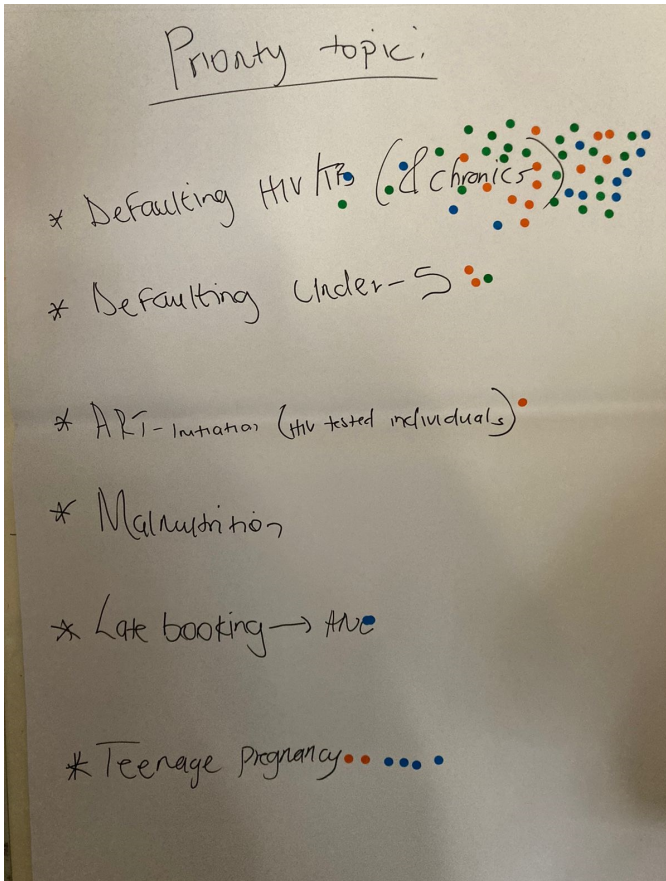 Priority topic:
* Defaulting HIV/TB (& chronics)
* Defaulting Under-5
* ART-Initiation (HIV tested individuals)
* Malnutrition
* Late booking → ANC
* Teenage pregnancy